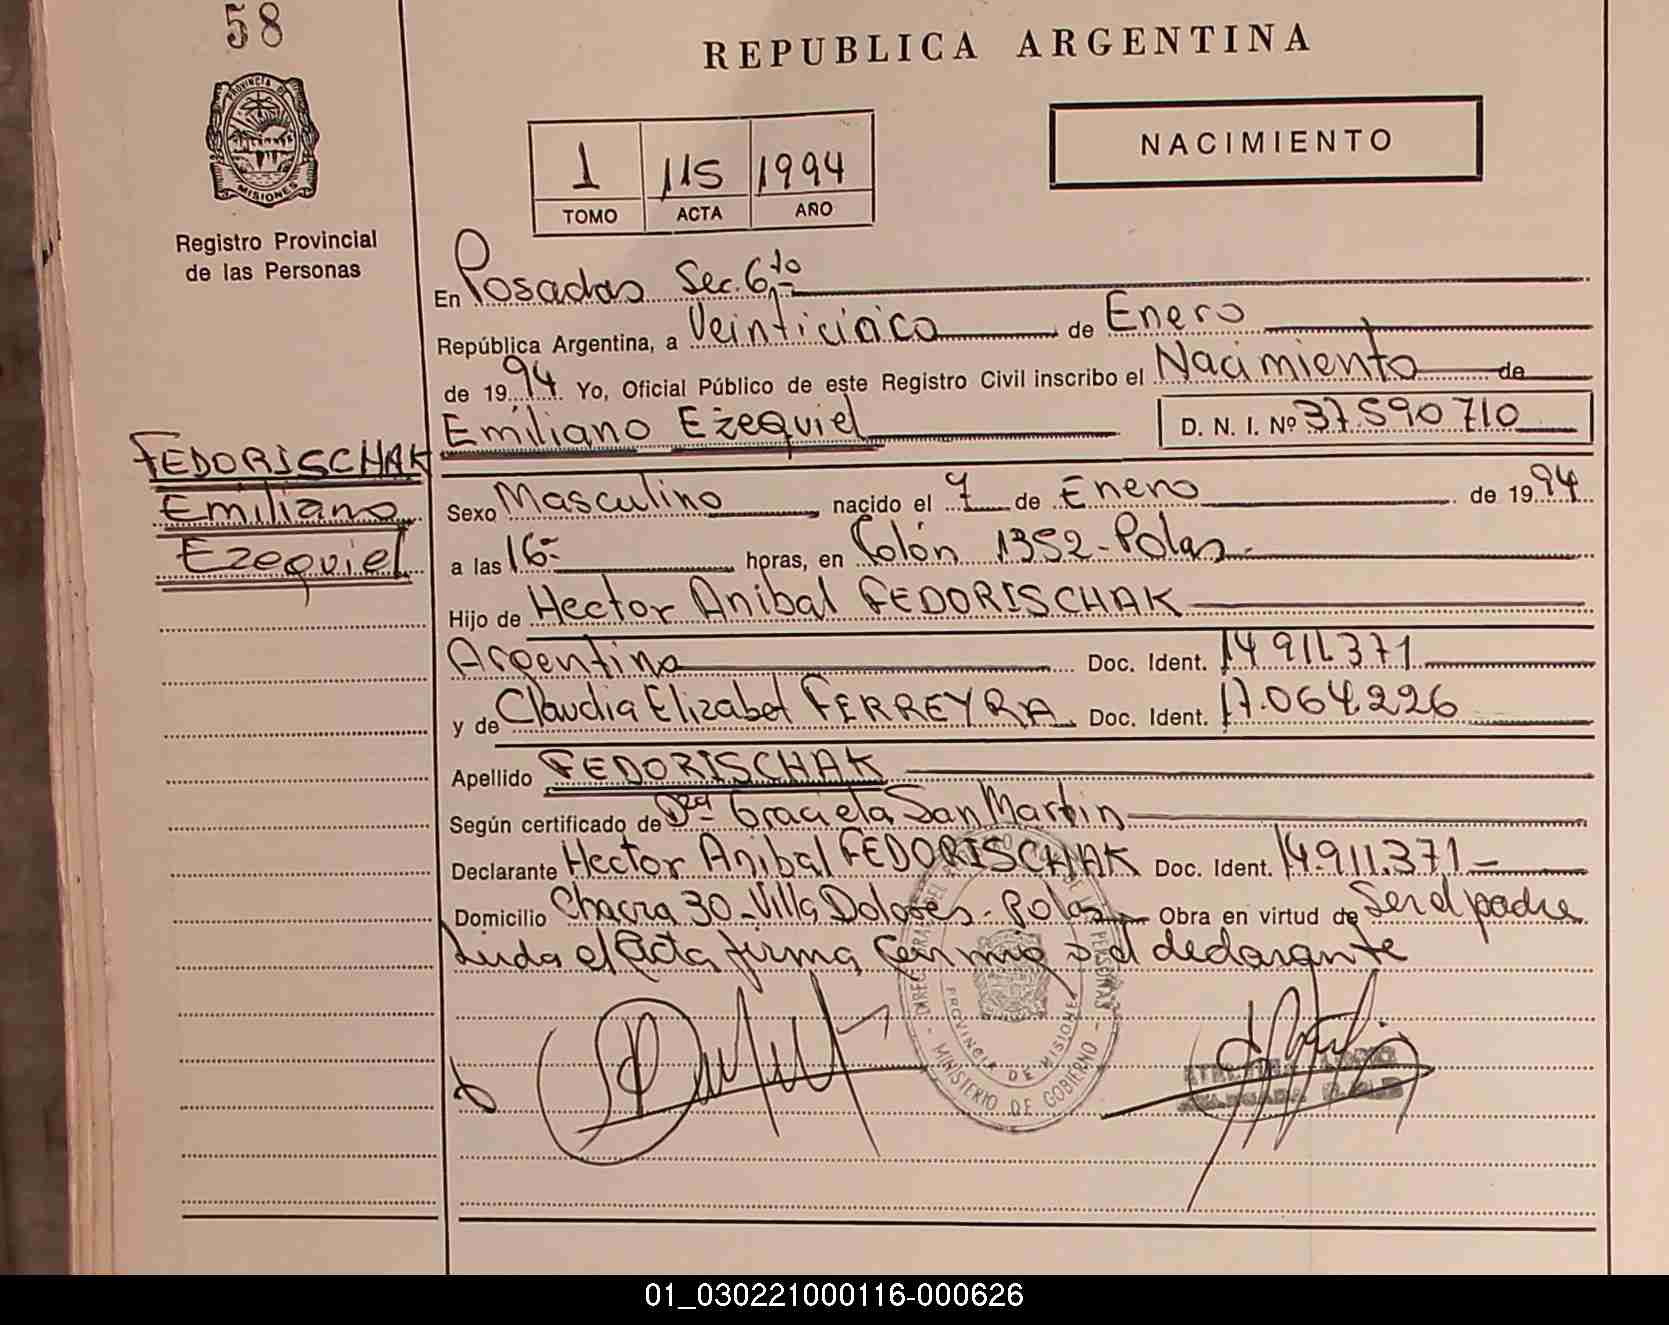 58
PROVINCIA DE
MISIONES
Registro Provincial
de las Personas
REPUBLICA ARGENTINA
1 115 1994
TOMO ACTA AÑO
NACIMIENTO
En Posadas Sec. 6to
República Argentina, a Veinticinco de Enero
de 1994 Yo, Oficial Público de este Registro Civil inscribo el Nacimiento de
Emiliano Ezequiel D. N. I. Nº 37.590710
FEDORISCHAK
Emiliano
Ezequiel
Sexo Masculino nacido el 7 de Enero de 1994
a las 16- horas, en Colón 1352-Pdas.
Hijo de Hector Anibal FEDORISCHAK
Argentina Doc. Ident. 14 911.371
y de Claudia Elizabet FERREYRA Doc. Ident. 17.064.226
Apellido FEDORISCHAK
Según certificado de Dra Graciela San Martin
Declarante Hector Anibal FEDORISCHAK Doc. Ident. 14.911.371-
Domicilio Chacra 30-Villa Dolores-Pdas Obra en virtud de Ser el padre
Leida el Acta firma conmigo el declarante
PROVINCIA DE MISIONES
MINISTERIO DE GOBIERNO
01_030221000116-000626